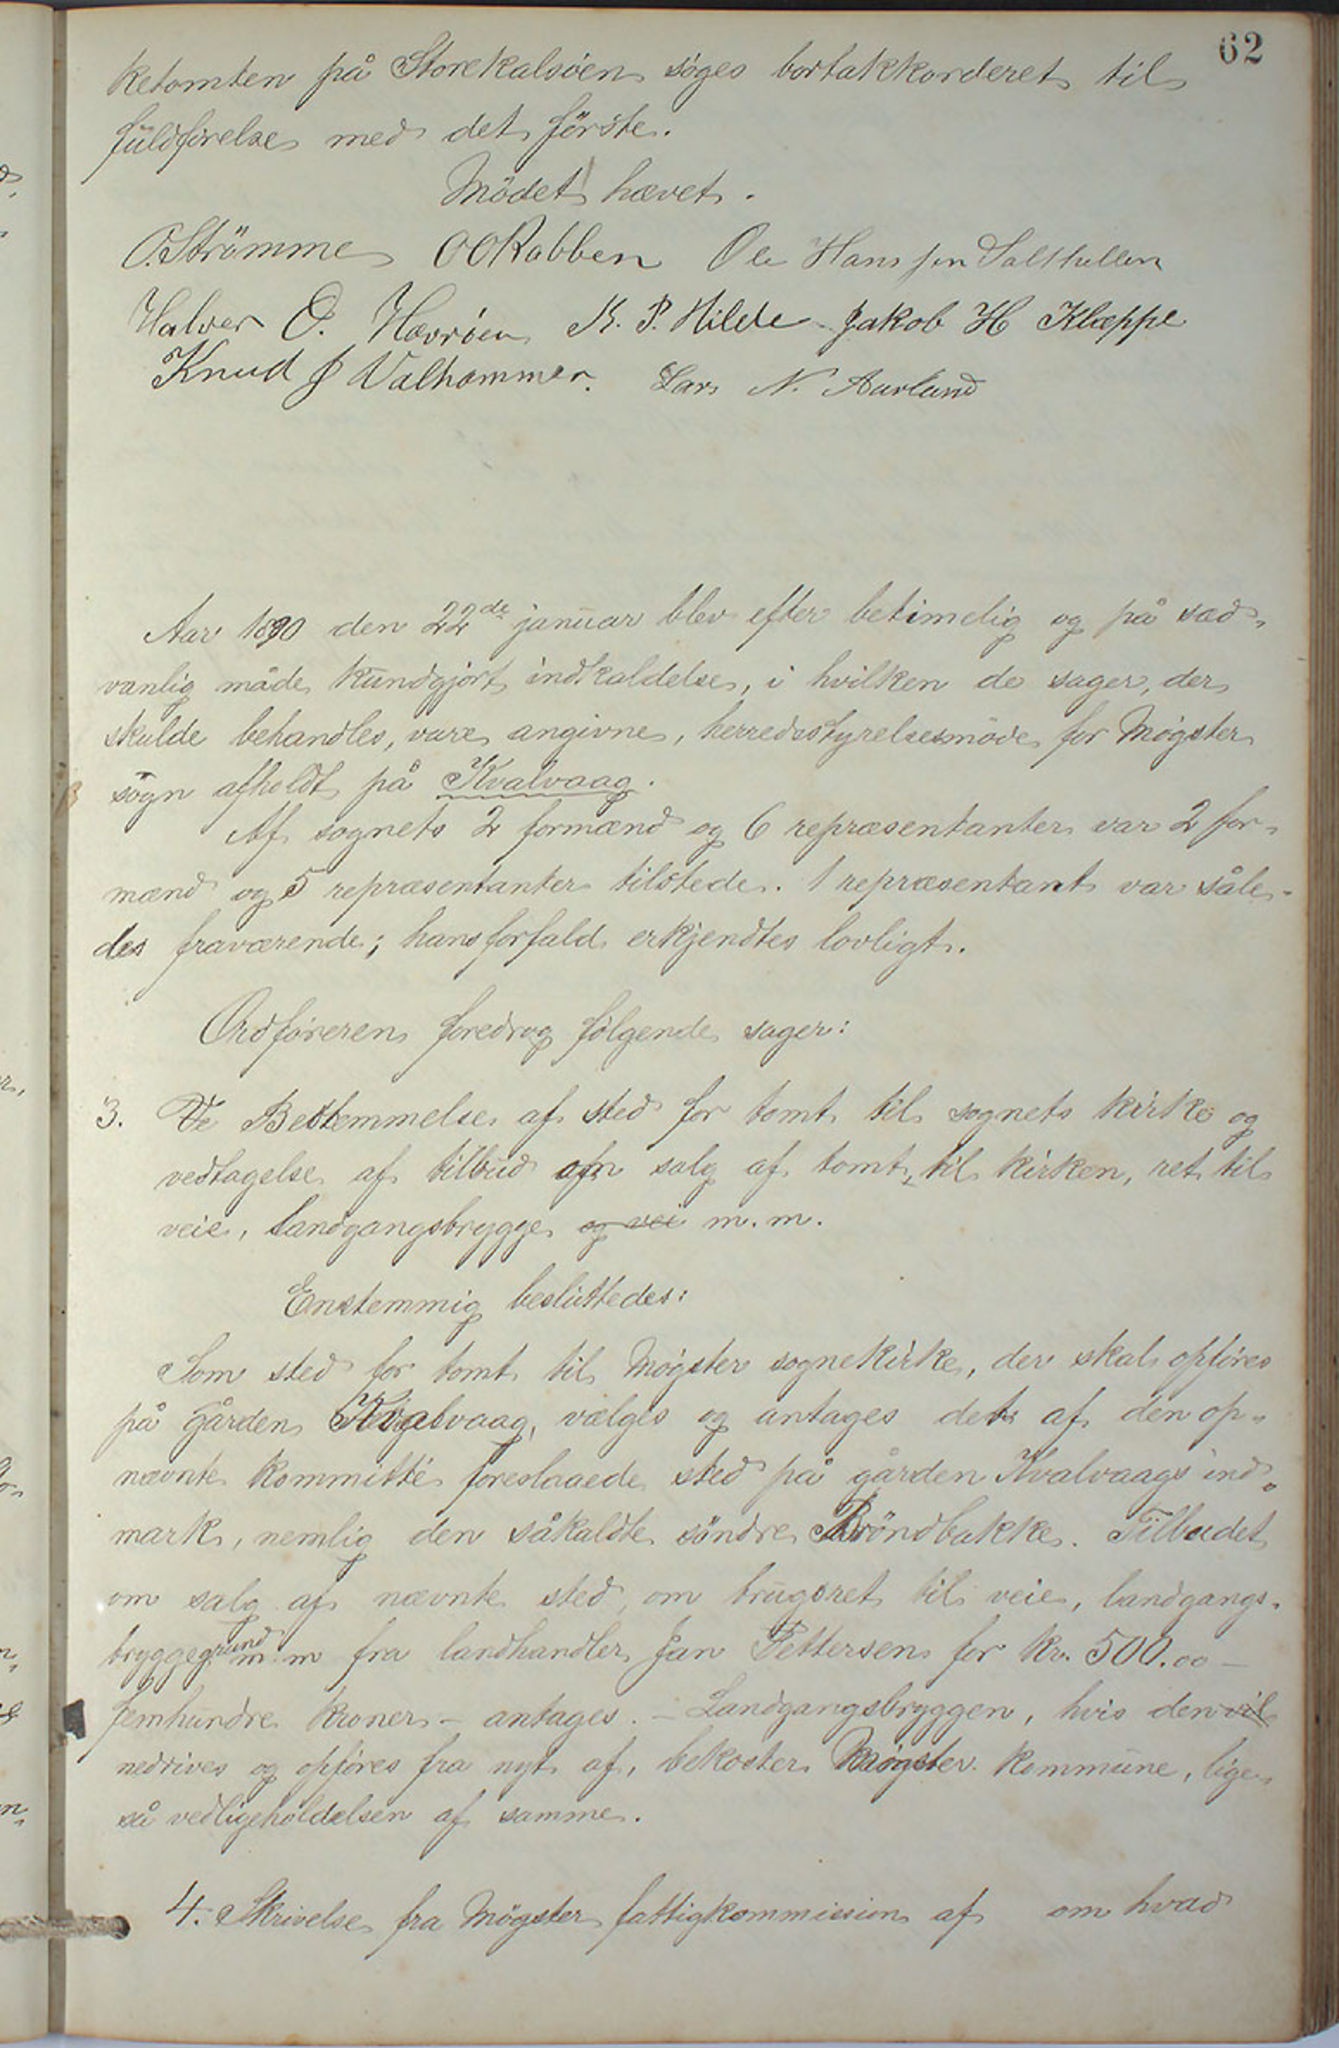 62
ketomten på Storekalsöen söges bortakkorderet til
fuldförelse med det förste.
Mödet hævet.
O. Strömme OORabben Ole Hansen Salthellen
Halver O. Hevröen K. P. Hilde Jakob H Kleppe
Knud J Valhammer. Lars N. Aurland
Aar 1890 den 22de januar blev efter betimelig og på sæd-
vanlig måde kundgjort indkaldelse, i hvilken de sager, der
skulde behandles, vare angivne, herredsstyrelsesmöde for Mögster
sogn afholdt på Kvalvaag.
Af sognets 2 formænd og 6 repræsentanter var 2 for-
mænd og 5 repræsentanter tilstede. 1 repræsentant var såle-
des fraværende; hans forfald erkjendtes lovligt.
Ordföreren foredrog fölgende sager:
3. Bestemmelse af sted for tomt til sognets kirke og
vedtagelse af tilbud om salg af tomt til kirken, ret til
veie, landgangsbrygge og vei m.m.
Enstemmig besluttedes:
Som sted for tomt til Mögster sognekirke, der skal opföres
på gården Kvalvaag, vælges og antages det af den op-
nævnte kommitté foreslaaede sted på gården Kvalvaags ind-
mark, nemlig den såkaldte söndre Bröndbakke. Tilbudet
om salg af nævnte sted, om brugsret til veie, landgangs-
bryggegrund m.m fra landhandler Jan Pettersen for kr. 500.00 -
femhundre kroner - antages. - Landgangsbryggen, hvis den vil
nedrives og opföres fra nyt af, bekoster Mögster kommune, lige
så vedligeholdelsen af samme.
4. Skrivelse fra Mögster fattigkommission af om hvad